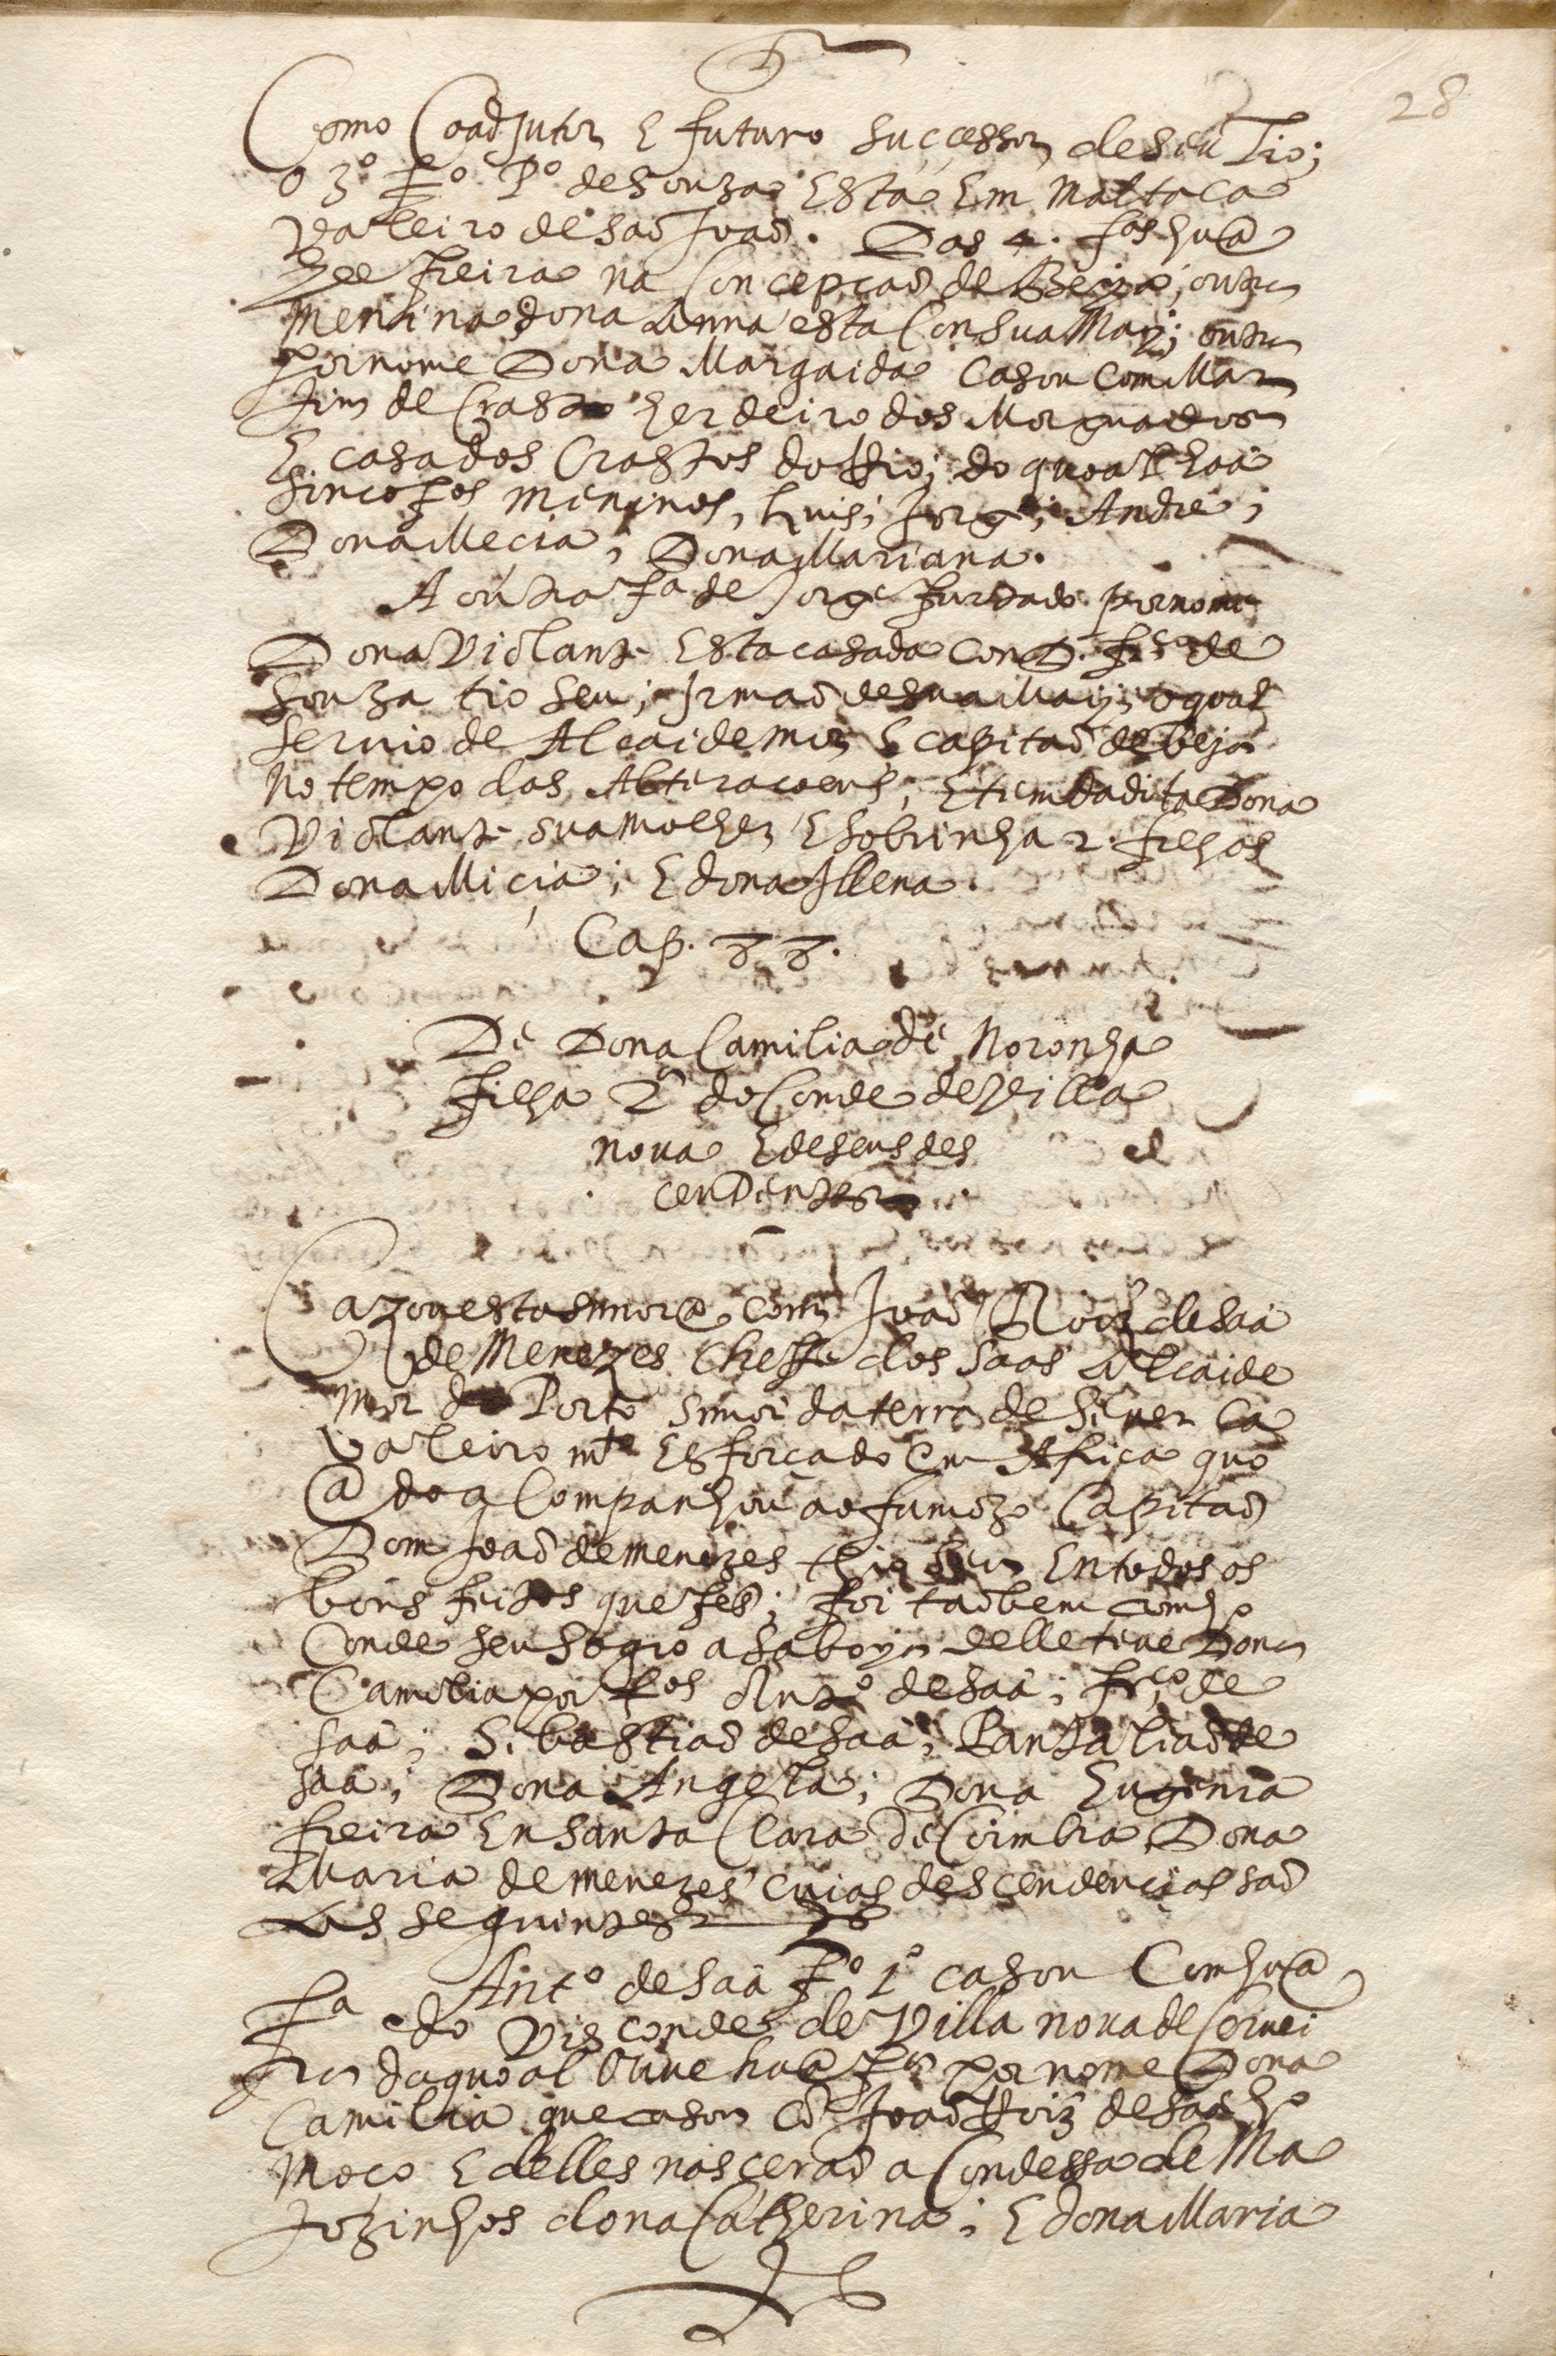 28
Como Coadjutor E futuro sucçessor de seu Tio;
o 3º fº Pº de souza Está Em Malta ca
valeiro de saõ Joaõ. Das 4. fas hu@
hee freira na Concepçaõ de Beija; outra
menina dona Anna esta Con sua Maÿ; outra
por nome Dona Margaida Casou Com Mar
tim de Crasto herdeiro dos Morguados
E casa dos Crastos do Rio; do quoal haá
sinco fos meninos, Luis; Jorge; Andre;
Dona Mecia; Dona Mariana.
A outra fa de Jorge furtado por nome
Dona Violante Esta casada con D. frco de
souza tio seu; Jrmaõ de sua Maÿ; o qoal
seruio de Alcaide mor E capitaõ de Beja
No tempo das Alteracoens; E tem da dita Dona
Violante sua molher E sobrinha 2. filhas
Dona Miçia; E dona Illena.
Cap. 88.
De Dona Camilia de Noronha
filha 2ª do Conde de Villa
noua E de seus des
cendentes
Cazou esta snnor@ com Joaõ Roiz de saá
de Menezes Cheffe dos saas Alcaide
mor do Porto snnor da terra de Seuer ca
valeiro mto Esforçado Em Africa quo
@do a Companhou ao famozo Capitaõ
Dom Joaõ de menezes thio seu En todos os
bons feitos que fes; foi taõbem com ho
Conde seu sogro a saboya delle teue Dona
Camilia por fos Antº de saá; frco de
saá; Sibastiaõ de saá; Pantaliaõ de
saá; Dona Angela; Dona Eugenia
freira En santa Clara de Coimbra, Dona
Maria de menezes cuias desçendencias saõ
as seguintes
Antº de saá fº 1º casou Com hu@
fa do Visconde de Villa noua de Ceruei
ra da quoal Ouue hu@ fa por nome Dona
Camilia que casou cõ Joaõ Roiz de saá ho
Moço E delles nasçeraõ a Condessa de Ma
tozinhos dona Catherina; E dona Maria